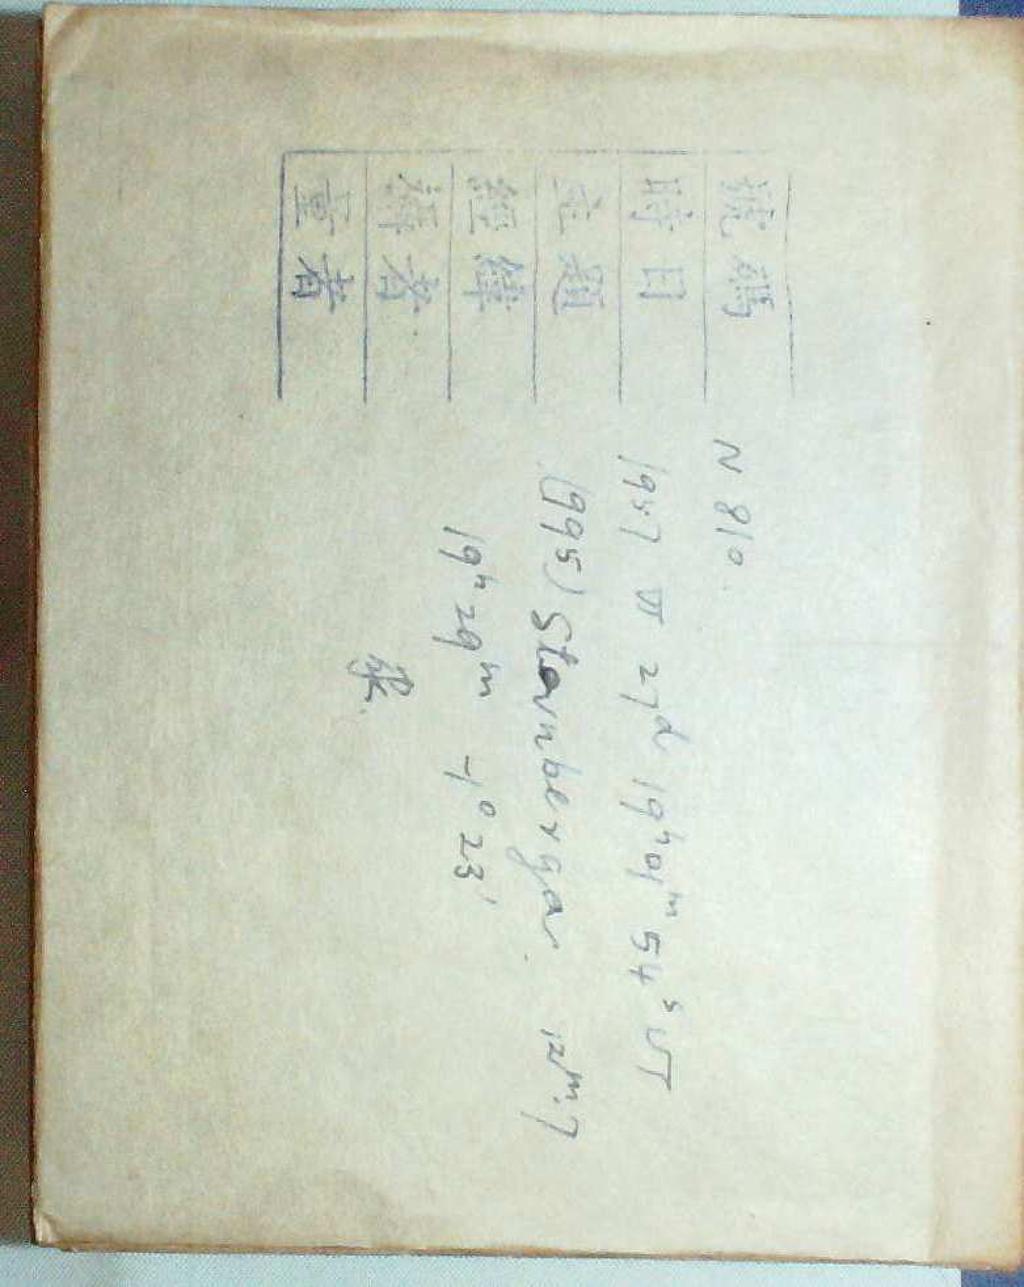 號碼 N 810.
時日 1957 VI 27ᵈ 19ʰ01ᵐ54ˢ UT
主題 (995) Sternberga. 12ᵐ.7
經緯 19ʰ29ᵐ -1°23'
者
量者